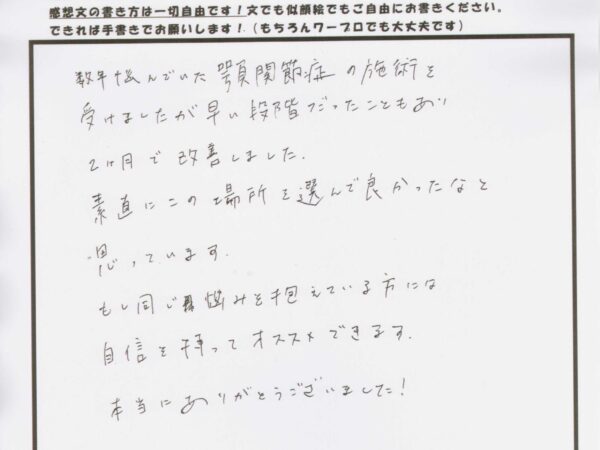 感想文の書き方は一切自由です!文でも似顔絵でもご自由にお書きください。
できれば手書きでお願いします!(もちろんワープロでも大丈夫です)
数年悩んでいた顎関節症の施術を
受けましたが早い段階だったこともあり
2ヶ月で改善しました.
素直にこの場所を選んで良かったなと
思っています.
もし同じ悩みを抱えている方には
自信を持ってオススメできます.
本当にありがとうございました!